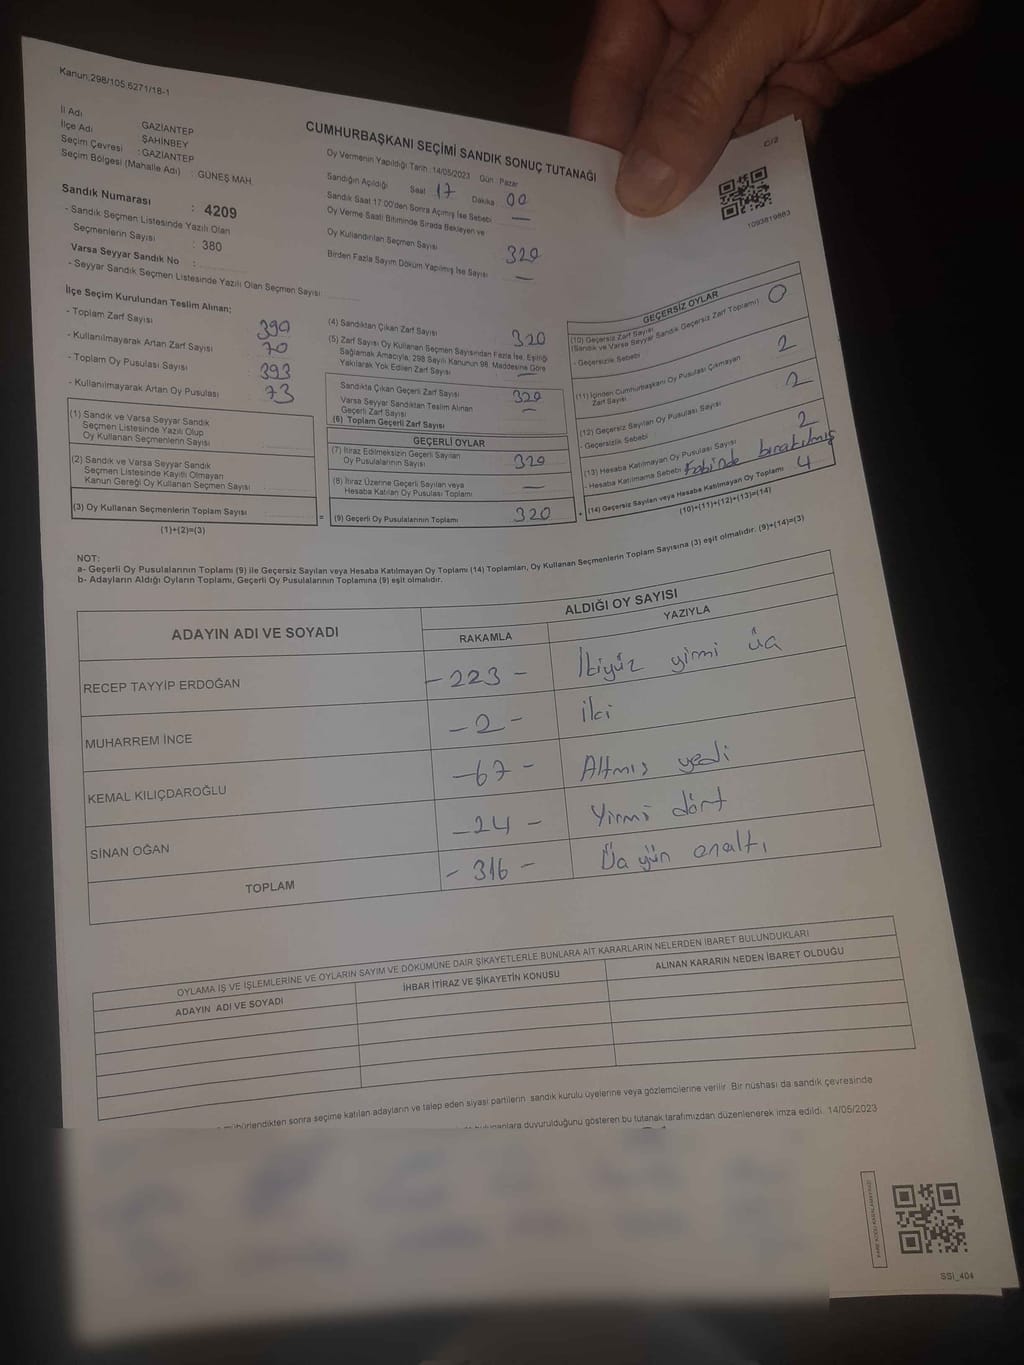 Kanun;298/105;6271/18-1
C/2
İl Adı
GAZİANTEP
İlçe Adı
ŞAHİNBEY
Seçim Çevresi
:GAZİANTEP
Seçim Bölgesi (Mahalle Adı)
: GÜNEŞ MAH.
Sandık Numarası : 4209
- Sandık Seçmen Listesinde Yazılı Olan
Seçmenlerin Sayısı : 380
Varsa Seyyar Sandık No :
- Seyyar Sandık Seçmen Listesinde Yazılı Olan Seçmen Sayısı:
CUMHURBAŞKANI SEÇİMİ SANDIK SONUÇ TUTANAĞI
Oy Vermenin Yapıldığı Tarih :14/05/2023 Gün : Pazar
Sandığın Açıldığı Saat 17 Dakika 00
Sandık Saat 17.00'den Sonra Açılmış İse Sebebi —
Oy Verme Saati Bitiminde Sırada Bekleyen ve
Oy Kullandırılan Seçmen Sayısı 320
Birden Fazla Sayım Döküm Yapılmış İse Sayısı —
1093819883
İlçe Seçim Kurulundan Teslim Alınan;
- Toplam Zarf Sayısı 390
- Kullanılmayarak Artan Zarf Sayısı 70
- Toplam Oy Pusulası Sayısı 393
- Kullanılmayarak Artan Oy Pusulası 73
(1) Sandık ve Varsa Seyyar Sandık
Seçmen Listesinde Yazılı Olup
Oy Kullanan Seçmenlerin Sayısı
(2) Sandık ve Varsa Seyyar Sandık
Seçmen Listesinde Kayıtlı Olmayan
Kanun Gereği Oy Kullanan Seçmen Sayısı
(3) Oy Kullanan Seçmenlerin Toplam Sayısı
(1)+(2)=(3)
=
(4) Sandıktan Çıkan Zarf Sayısı 320
(5) Zarf Sayısı Oy Kullanan Seçmen Sayısından Fazla İse, Eşitliği
Sağlamak Amacıyla; 298 Sayılı Kanunun 98. Maddesine Göre
Yakılarak Yok Edilen Zarf Sayısı —
Sandıkta Çıkan Geçerli Zarf Sayısı 320
Varsa Seyyar Sandıktan Teslim Alınan
Geçerli Zarf Sayısı —
(6) Toplam Geçerli Zarf Sayısı
GEÇERLİ OYLAR
(7) İtiraz Edilmeksizin Geçerli Sayılan
Oy Pusulalarının Sayısı 320
(8) İtiraz Üzerine Geçerli Sayılan veya
Hesaba Katılan Oy Pusulası Toplamı —
(9) Geçerli Oy Pusulalarının Toplamı 320
+
GEÇERSİZ OYLAR
(10) Geçersiz Zarf Sayısı 0
(Sandık ve Varsa Seyyar Sandık Geçersiz Zarf Toplamı)
- Geçersizlik Sebebi
(11) İçinden Cumhurbaşkanı Oy Pusulası Çıkmayan
Zarf Sayısı 2
(12) Geçersiz Sayılan Oy Pusulası Sayısı 2
- Geçersizlik Sebebi
(13) Hesaba Katılmayan Oy Pusulası Sayısı 2
- Hesaba Katılmama Sebebi Kabinde bırakılmış
(14) Geçersiz Sayılan veya Hesaba Katılmayan Oy Toplamı 4
(10)+(11)+(12)+(13)=(14)
NOT:
a- Geçerli Oy Pusulalarının Toplamı (9) ile Geçersiz Sayılan veya Hesaba Katılmayan Oy Toplamı (14) Toplamları, Oy Kullanan Seçmenlerin Toplam Sayısına (3) eşit olmalıdır. (9)+(14)=(3)
b- Adayların Aldığı Oyların Toplamı, Geçerli Oy Pusulalarının Toplamına (9) eşit olmalıdır.
ADAYIN ADI VE SOYADI
ALDIĞI OY SAYISI
RAKAMLA
YAZIYLA
RECEP TAYYİP ERDOĞAN - 223 - İkiyüz yirmi üç
MUHARREM İNCE - 2 - iki
KEMAL KILIÇDAROĞLU - 67 - Altmış yedi
SİNAN OĞAN - 24 - Yirmi dört
TOPLAM - 316 - Üç yüz onaltı
OYLAMA İŞ VE İŞLEMLERİNE VE OYLARIN SAYIM VE DÖKÜMÜNE DAİR ŞİKAYETLERLE BUNLARA AİT KARARLARIN NELERDEN İBARET BULUNDUKLARI
ADAYIN ADI VE SOYADI
İHBAR İTİRAZ VE ŞİKAYETİN KONUSU
ALINAN KARARIN NEDEN İBARET OLDUĞU
mühürlendikten sonra seçime katılan adayların ve talep eden siyasi partilerin sandık kurulu üyelerine veya gözlemcilerine verilir. Bir nüshası da sandık çevresinde
duyurulduğunu gösteren bu tutanak tarafımızdan düzenlenerek imza edildi. 14/05/2023
SSİ_404